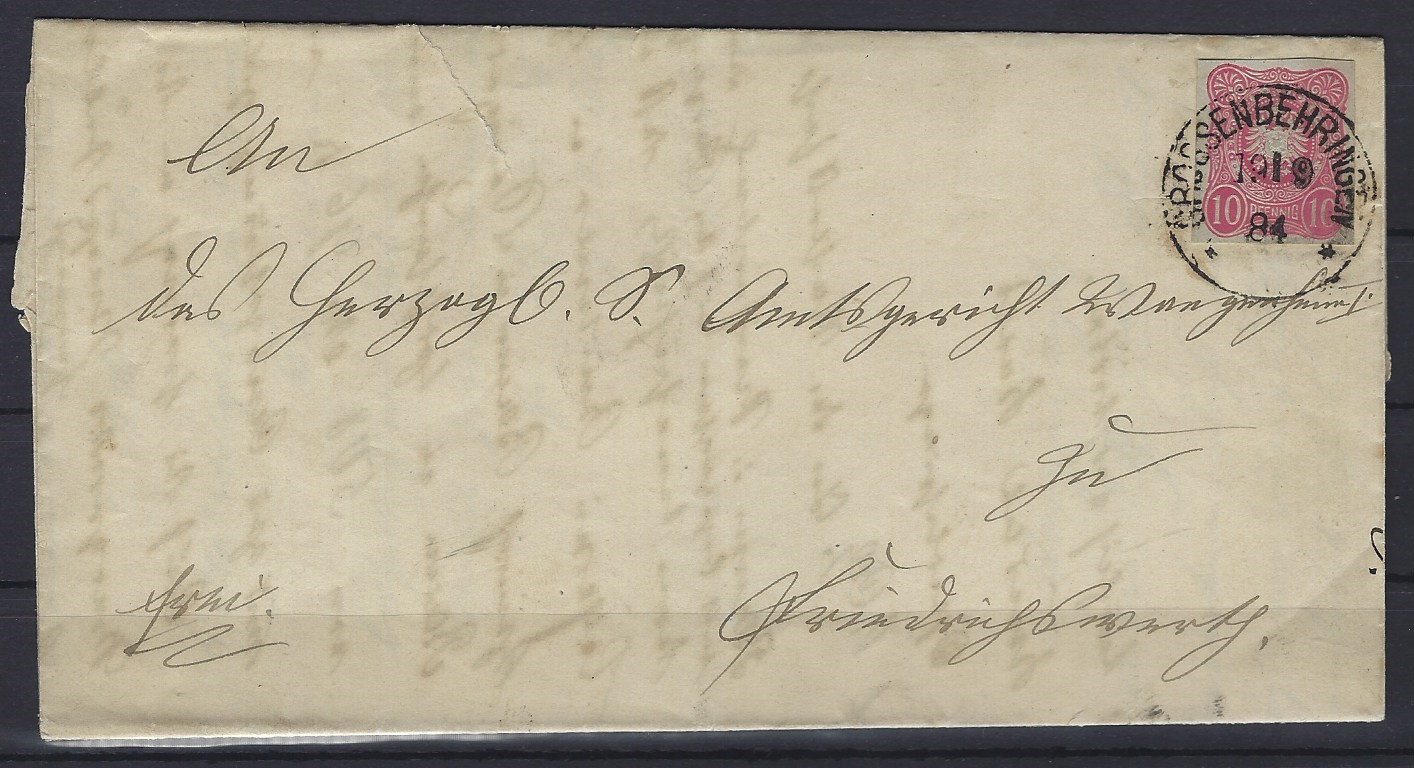 GROSSENBEHRINGEN
19 9
84
10 PFENNIG 10
An
das Herzogl. S. Amtsgericht Wangenheim
zu
frei.
Friedrichswerth.